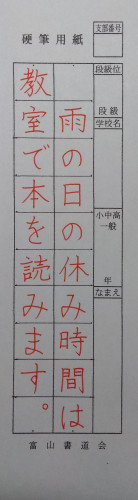 硬筆用紙
支部番号
段級位
段級
学校名
小中高
一般
年
なまえ
雨の日の休み時間は
教室で本を読みます。
富山書道会